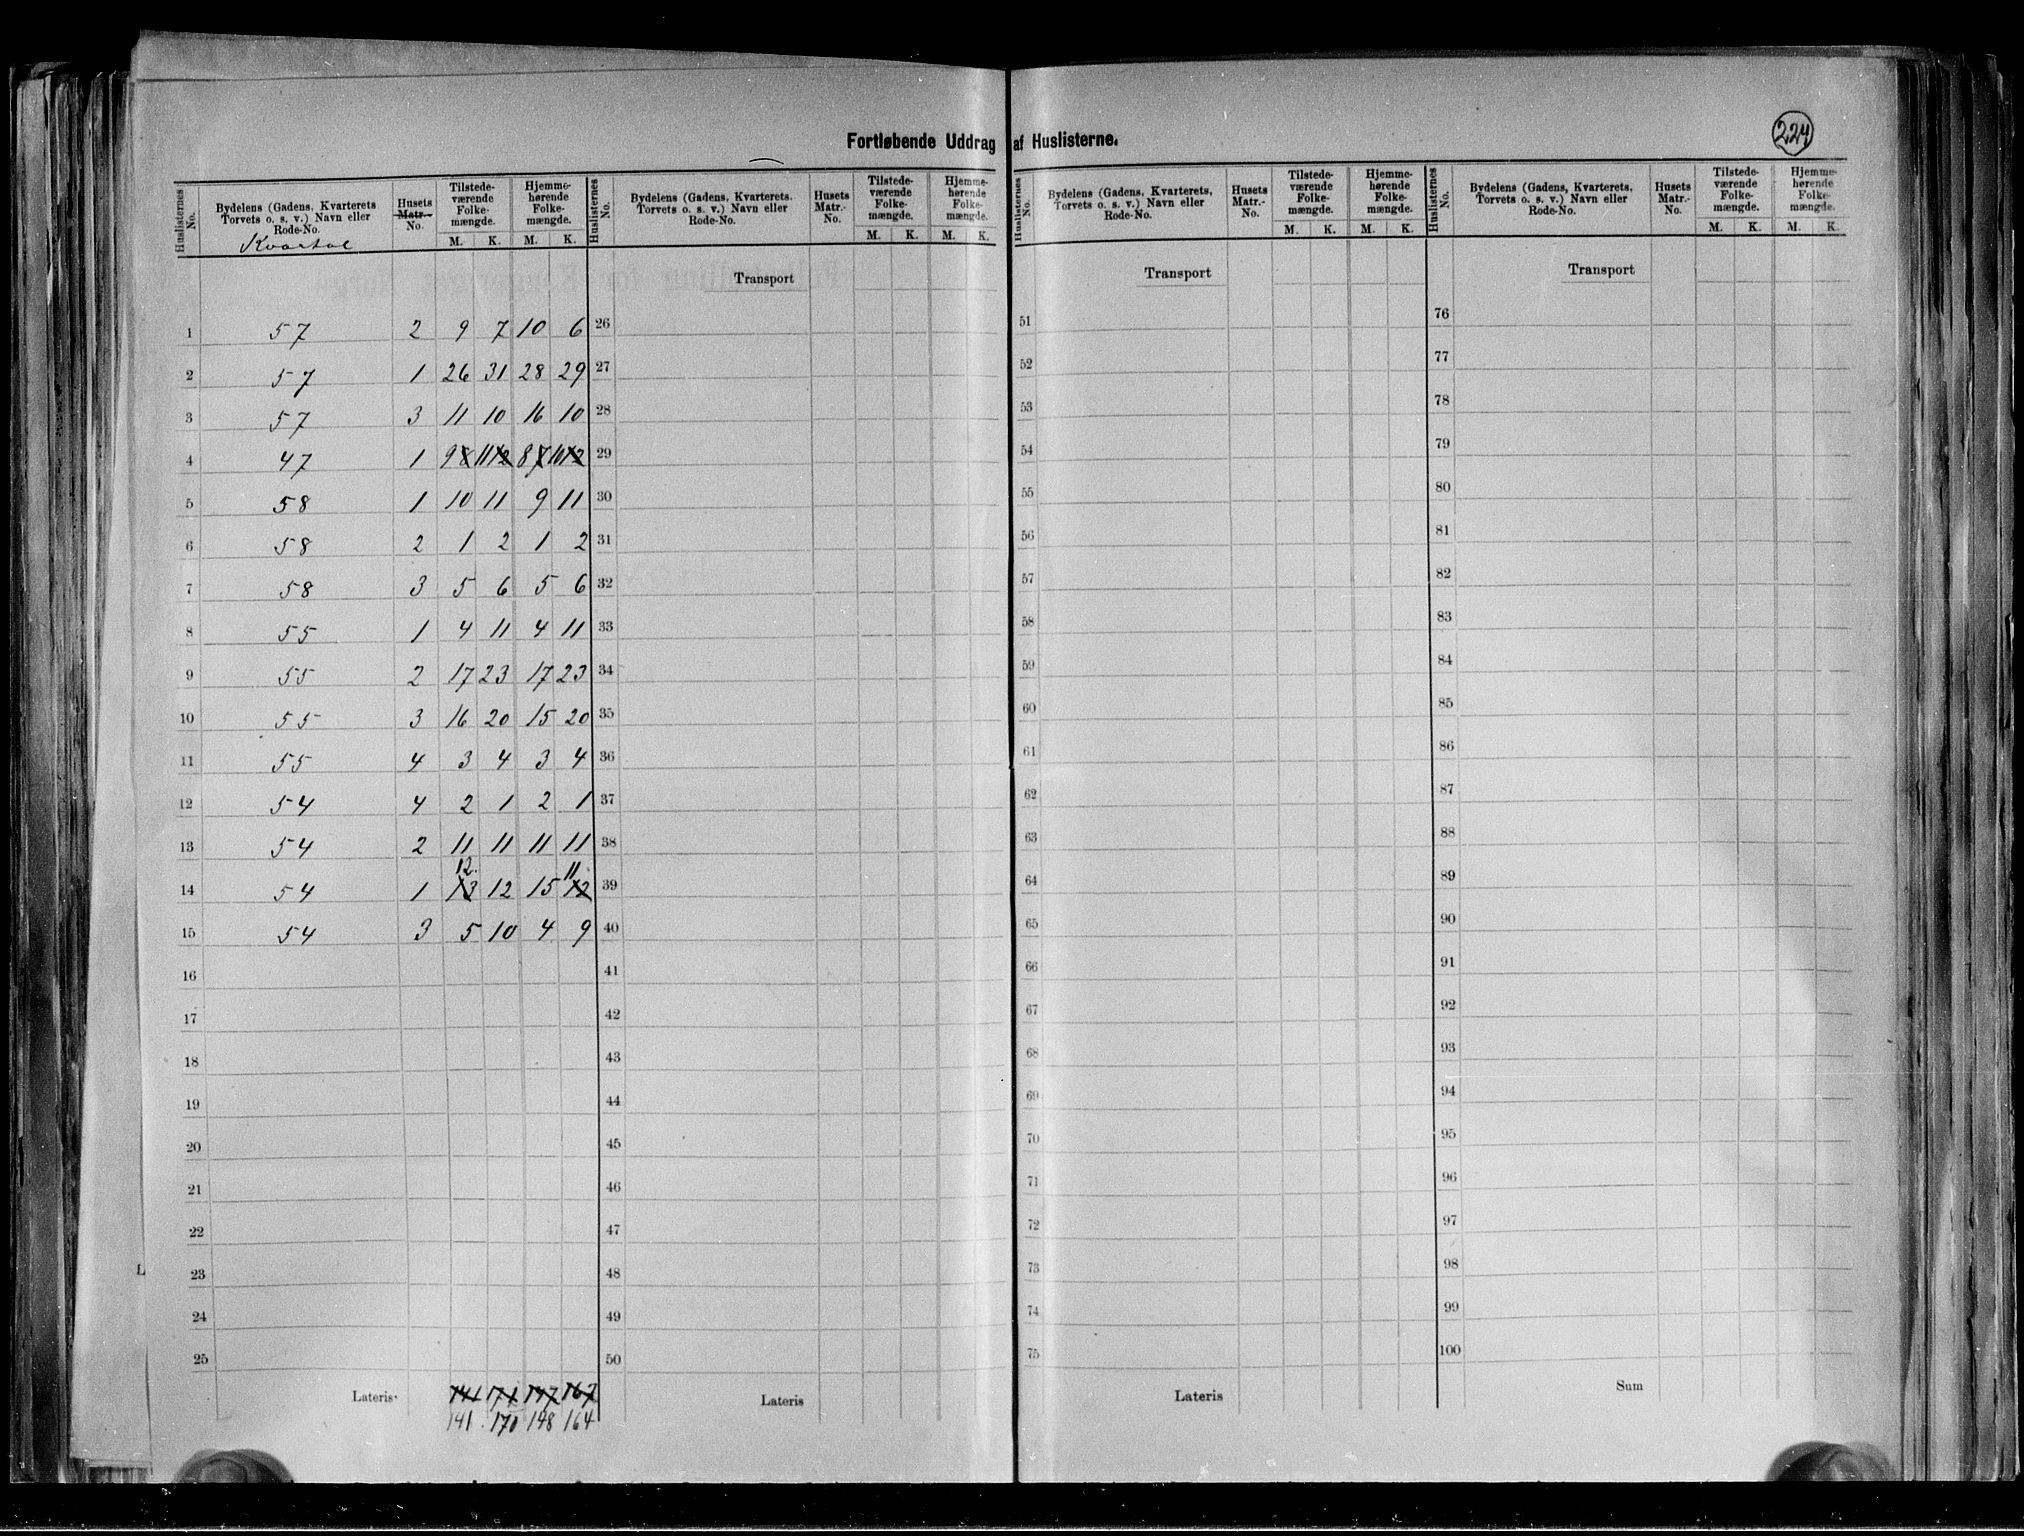 Fortløbende Uddrag af Huslisterne.
224
Huslisternes No. | Bydelens (Gadens, Kvarterets, Torvets o. s. v.) Navn eller Rode-No. Kvartal | Husets Matr.-No. | Tilstedeværende Folkemængde. M. K. | Hjemmehørende Folkemængde. M. K.
Huslisternes No. | Bydelens (Gadens, Kvarterets, Torvets o. s. v.) Navn eller Rode-No. | Husets Matr.-No. | Tilstedeværende Folkemængde. M. K. | Hjemmehørende Folkemængde. M. K.
Huslisternes No. | Bydelens (Gadens, Kvarterets, Torvets o. s. v.) Navn eller Rode-No. | Husets Matr.-No. | Tilstedeværende Folkemængde. M. K. | Hjemmehørende Folkemængde. M. K.
Huslisternes No. | Bydelens (Gadens, Kvarterets, Torvets o. s. v.) Navn eller Rode-No. | Husets Matr.-No. | Tilstedeværende Folkemængde. M. K. | Hjemmehørende Folkemængde. M. K.
Transport Transport Transport
1 57 2 9 7 10 6 26 51 76
2 57 1 26 31 28 29 27 52 77
3 57 3 11 10 16 10 28 53 78
4 47 1 9 8 11 12 8 7 10 12 29 54 79
5 58 1 10 11 9 11 30 55 80
6 58 2 1 2 1 2 31 56 81
7 58 3 5 6 5 6 32 57 82
8 55 1 4 11 4 11 33 58 83
9 55 2 17 23 17 23 34 59 84
10 55 3 16 20 15 20 35 60 85
11 55 4 3 4 3 4 36 61 86
12 54 4 2 1 2 1 37 62 87
13 54 2 11 11 11 11 38 63 88
12. 11
14 54 1 13 12 15 12 39 64 89
15 54 3 5 10 4 9 40 65 90
16 41 66 91
17 42 67 92
18 43 68 93
19 44 69 94
20 45 70 95
21 46 71 96
22 47 72 97
23 48 73 98
24 49 74 99
25 50 75 100
Lateris 141 171 147 167 Lateris Lateris Sum
141 170 148 164